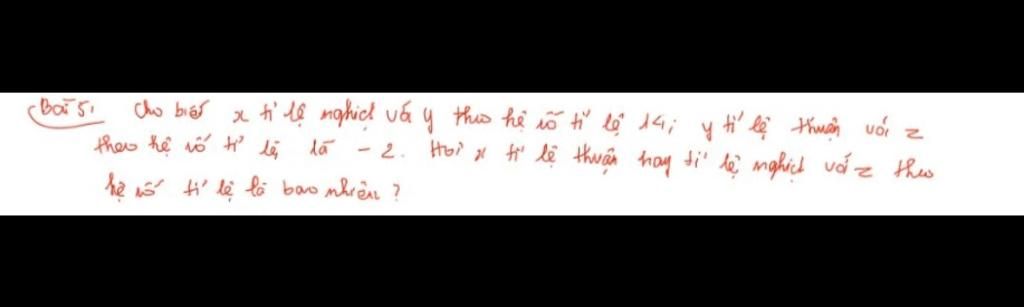 Bài 5. Cho biết x tỉ lệ nghịch với y theo hệ số tỉ lệ 14; y tỉ lệ thuận với z
theo hệ số tỉ lệ là -2. Hỏi x tỉ lệ thuận hay tỉ lệ nghịch với z theo
hệ số tỉ lệ là bao nhiêu?